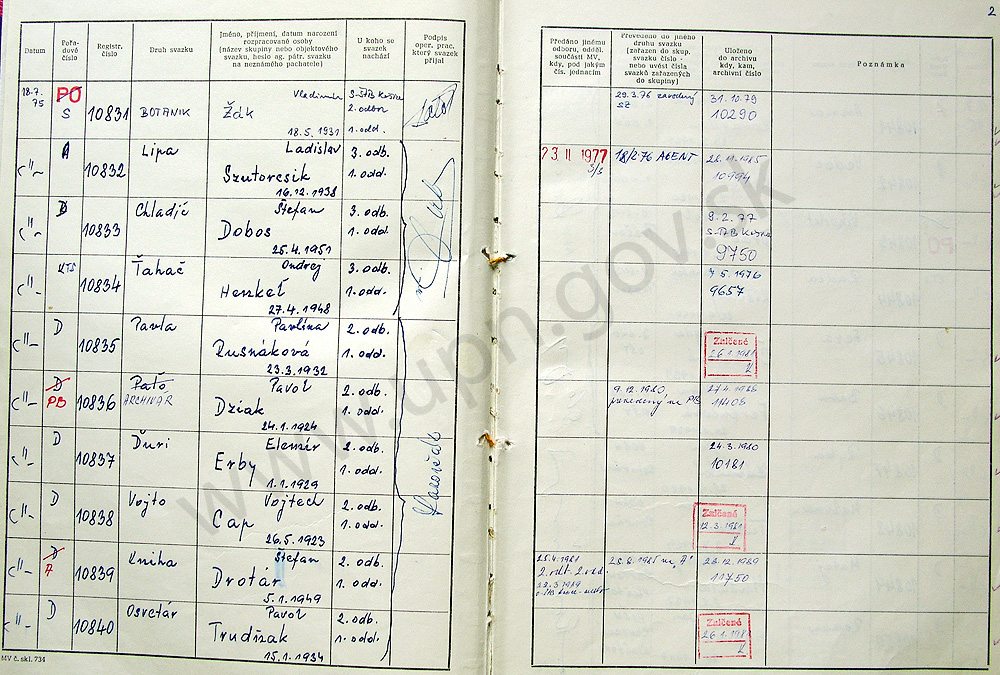 2
Datum
Pořa-
dové
číslo
Registr.
číslo
Druh svazku
Jméno, příjmení, datum narození
rozpracované osoby
(název skupiny nebo objektového
svazku, heslo ag. pátr. svazku
na neznámého pachatele)
U koho se
svazek
nachází
Podpis
oper. prac.
který svazek
přijal
Předáno jinému
odboru, odděl.
součásti MV,
kdy, pod jakým
čís. jednacím
Převedeno do jiného
druhu svazku
(zařazen do skup.
svazku číslo -
nebo uvést čísla
svazků zařazených
do skupiny)
Uloženo
do archivu
kdy, kam,
archivní číslo
Poznámka
18.7.
75
PO
S
10831
BOTANIK
Vladimír
Žák
18.5.1931
S-ŠTB Košice
2. odbor
1. odd.
29.3.76 zavedený
SZ
31.10.79
10290
A
10832
Lipa
Ladislav
Szutorcsik
16.12.1938
3. odb.
1. odd.
23 II 1977
18/2.76 AGENT
1985
10994
D
10833
Chladič
Štefan
Dobos
25.4.1951
3. odb.
1. odd.
9.2.77
S-ŠTB Košice
9750
KTS
10834
Ťahač
Ondrej
Henzkel
27.4.1948
3. odb.
1. odd.
7.5.1976
9657
D
10835
Pavla
Pavlína
Rusnáková
23.3.1932
2. odb.
1. odd.
Zničené
26.1.1981
D
PB
10836
Paťo
ARCHIVÁR
Pavol
Dziak
24.1.1924
2. odb.
1. odd.
9.12.1980
prevedený na PB
11408
D
10837
Ďuri
Elemír
Erby
1.1.1929
2. odb.
1. odd.
24.3.1980
10181
D
10838
Vojto
Vojtech
Cap
26.5.1923
2. odb.
1. odd.
Zničené
12.3.1981
D
A
10839
Kniha
Štefan
Drotár
5.1.1949
2. odb.
1. odd.
25.4.1981
1985 na "A"
1989
11750
D
10840
Osvetár
Pavol
Trudžak
15.1.1934
2. odb.
1. odd.
Zničené
26.1.1981
MV č. skl. 734
www.upn.gov.sk